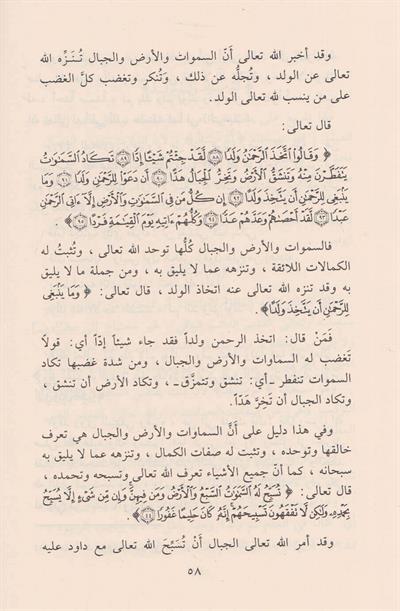 وقد أخبر الله تعالى أنّ السموات والأرض والجبال تُنَزِّه الله
تعالى عن الولد ، وتُجلُّه عن ذلك ، وتُنكر وتغضب كلَّ الغضب
على من ينسب لله تعالى الولد.
قال تعالى:
﴿ وَقَالُوا۟ ٱتَّخَذَ ٱلرَّحْمَٰنُ وَلَدًا ۝٨٨ لَّقَدْ جِئْتُمْ شَيْـًٔا إِدًّا ۝٨٩ تَكَادُ ٱلسَّمَٰوَٰتُ
يَتَفَطَّرْنَ مِنْهُ وَتَنشَقُّ ٱلْأَرْضُ وَتَخِرُّ ٱلْجِبَالُ هَدًّا ۝٩٠ أَن دَعَوْا۟ لِلرَّحْمَٰنِ وَلَدًا ۝٩١ وَمَا
يَنۢبَغِى لِلرَّحْمَٰنِ أَن يَتَّخِذَ وَلَدًا ۝٩٢ إِن كُلُّ مَن فِى ٱلسَّمَٰوَٰتِ وَٱلْأَرْضِ إِلَّآ ءَاتِى ٱلرَّحْمَٰنِ
عَبْدًا ۝٩٣ لَّقَدْ أَحْصَىٰهُمْ وَعَدَّهُمْ عَدًّا ۝٩٤ وَكُلُّهُمْ ءَاتِيهِ يَوْمَ ٱلْقِيَٰمَةِ فَرْدًا ۝٩٥ ﴾ .
فالسموات والأرض والجبال كلُّها توحد الله تعالى ، وتُثبتُ له
الكمالات اللائقة ، وتنزهه عما لا يليق به ، ومن جملة ما لا يليق
به وقد تنزه الله تعالى عنه اتخاذ الولد ، قال تعالى: ﴿ وَمَا يَنۢبَغِى
لِلرَّحْمَٰنِ أَن يَتَّخِذَ وَلَدًا ﴾ .
فَمَنْ قال: اتخذ الرحمن ولداً فقد جاء شيئاً إدّاً أي: قولاً
تَغضب له السموات والأرض والجبال ، ومن شدة غضبها تكاد
السموات تنفطر ـ أي: تنشق وتتمزَّق ـ ، وتكاد الأرض أن تنشق ،
وتكاد الجبال أن تَخِرَّ هَدّاً.
وفي هذا دليل على أنَّ السماوات والأرض والجبال هي تعرف
خالقها وتوحده ، وتثبت له صفات الكمال ، وتنزهه عما لا يليق به
سبحانه ، كما أنّ جميع الأشياء تعرف الله تعالى وتسبحه وتحمده ،
قال تعالى: ﴿ تُسَبِّحُ لَهُ ٱلسَّمَٰوَٰتُ ٱلسَّبْعُ وَٱلْأَرْضُ وَمَن فِيهِنَّ وَإِن مِّن شَىْءٍ إِلَّا يُسَبِّحُ
بِحَمْدِهِۦ وَلَٰكِن لَّا تَفْقَهُونَ تَسْبِيحَهُمْ إِنَّهُۥ كَانَ حَلِيمًا غَفُورًا ۝٤٤ ﴾ .
وقد أمر الله تعالى الجبال أنْ تُسَبِّحَ الله تعالى مع داود عليه
٥٨